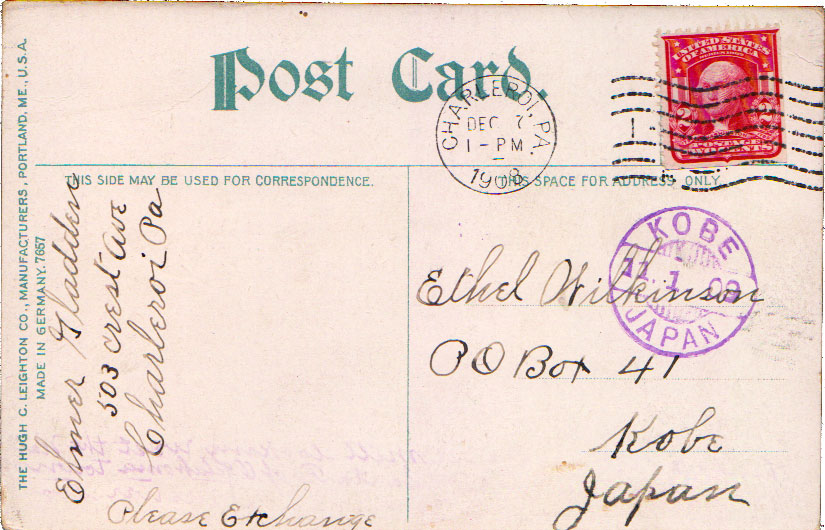 Post Card.
CHARLEROI, PA.
DEC 7
1 - PM
1908
UNITED STATES
OF AMERICA
2 2
POSTAGE
TWO CENTS
THIS SIDE MAY BE USED FOR CORRESPONDENCE.
(THIS SPACE FOR ADDRESS ONLY
THE HUGH C. LEIGHTON CO., MANUFACTURERS, PORTLAND, ME., U.S.A.
MADE IN GERMANY. 7657
Elmer Gladden
503 Crest Ave
Charleroi Pa
Please Exchange
KOBE
11.1.09
JAPAN
Ethel Wilkinson
PO Box 41
Kobe
Japan